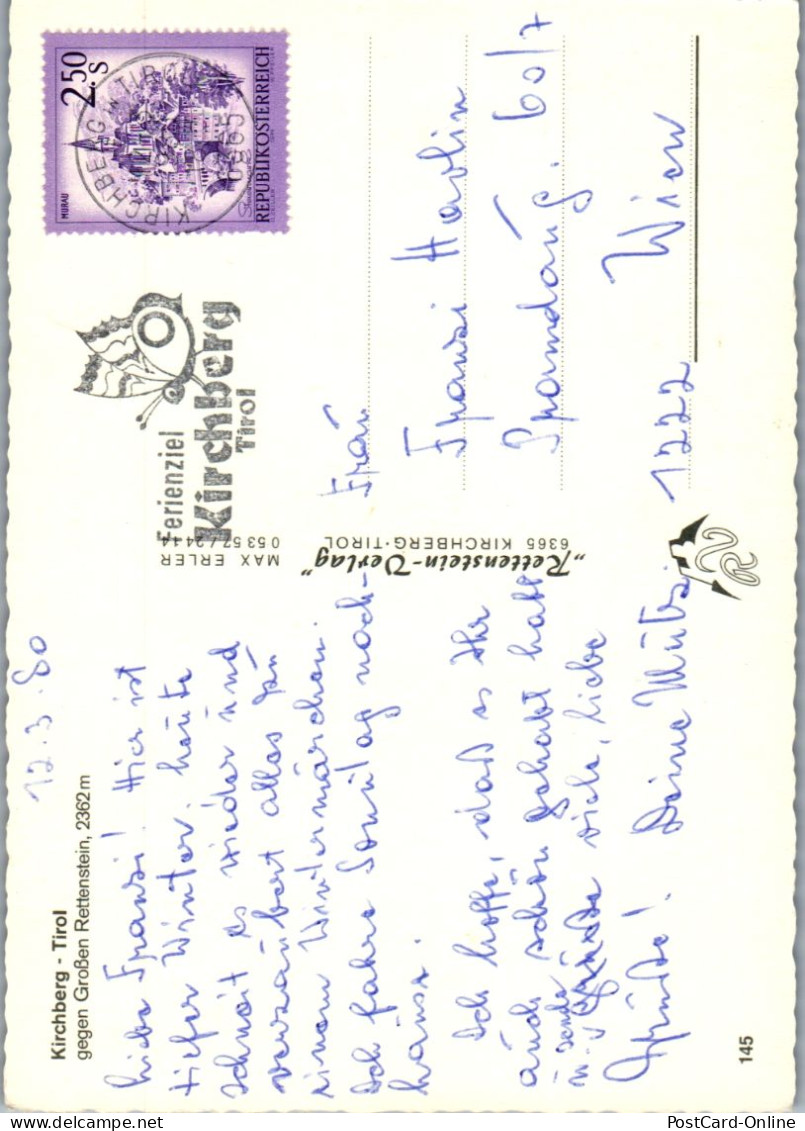 Kirchberg - Tirol
gegen Großen Rettenstein, 2362 m
12.3.80
Liebe Franzi! Hier ist
tiefer Winter, heute
schneit es wieder und
verzaubert alles zu
einem Wintermärchen.
Ich fahre Sonntag nach-
hause.
Ich hoffe, daß es Ihr
auch schön gehabt habt
u. sende viele, liebe
Grüße! Deine Mutti.
145
MAX ERLER
0 53 57 / 2414
"Rettenstein-Verlag"
6365 KIRCHBERG·TIROL
Ferienziel
Kirchberg
Tirol
KIRCHBERG TIROL
2.50 S
MURAU
REPUBLIK ÖSTERREICH
Frau
Franzi Havlin
60/7
1222 Wien
PostCard-Online